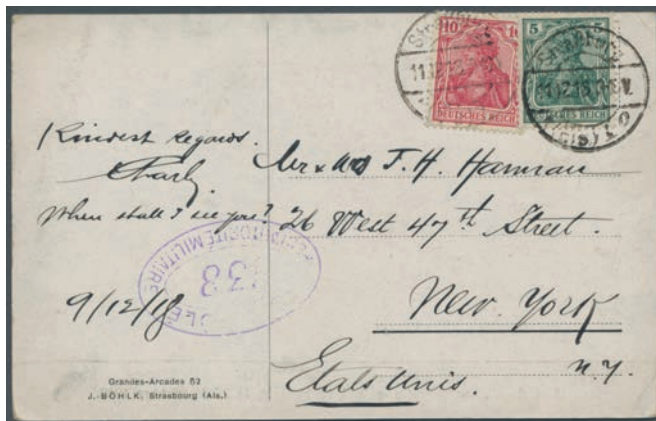 10
5
DEUTSCHES REICH
DEUTSCHES REICH
Kindest regards.
Charly.
When shall I see you?
9/12/18
Mr & Mrs J. H. Hamman
26 West 47th Street.
New York
N.Y.
Etats Unis.
AUTORITÉ MILITAIRE
Grandes-Arcades 52
J. BÖHLK, Strasbourg (Als.)